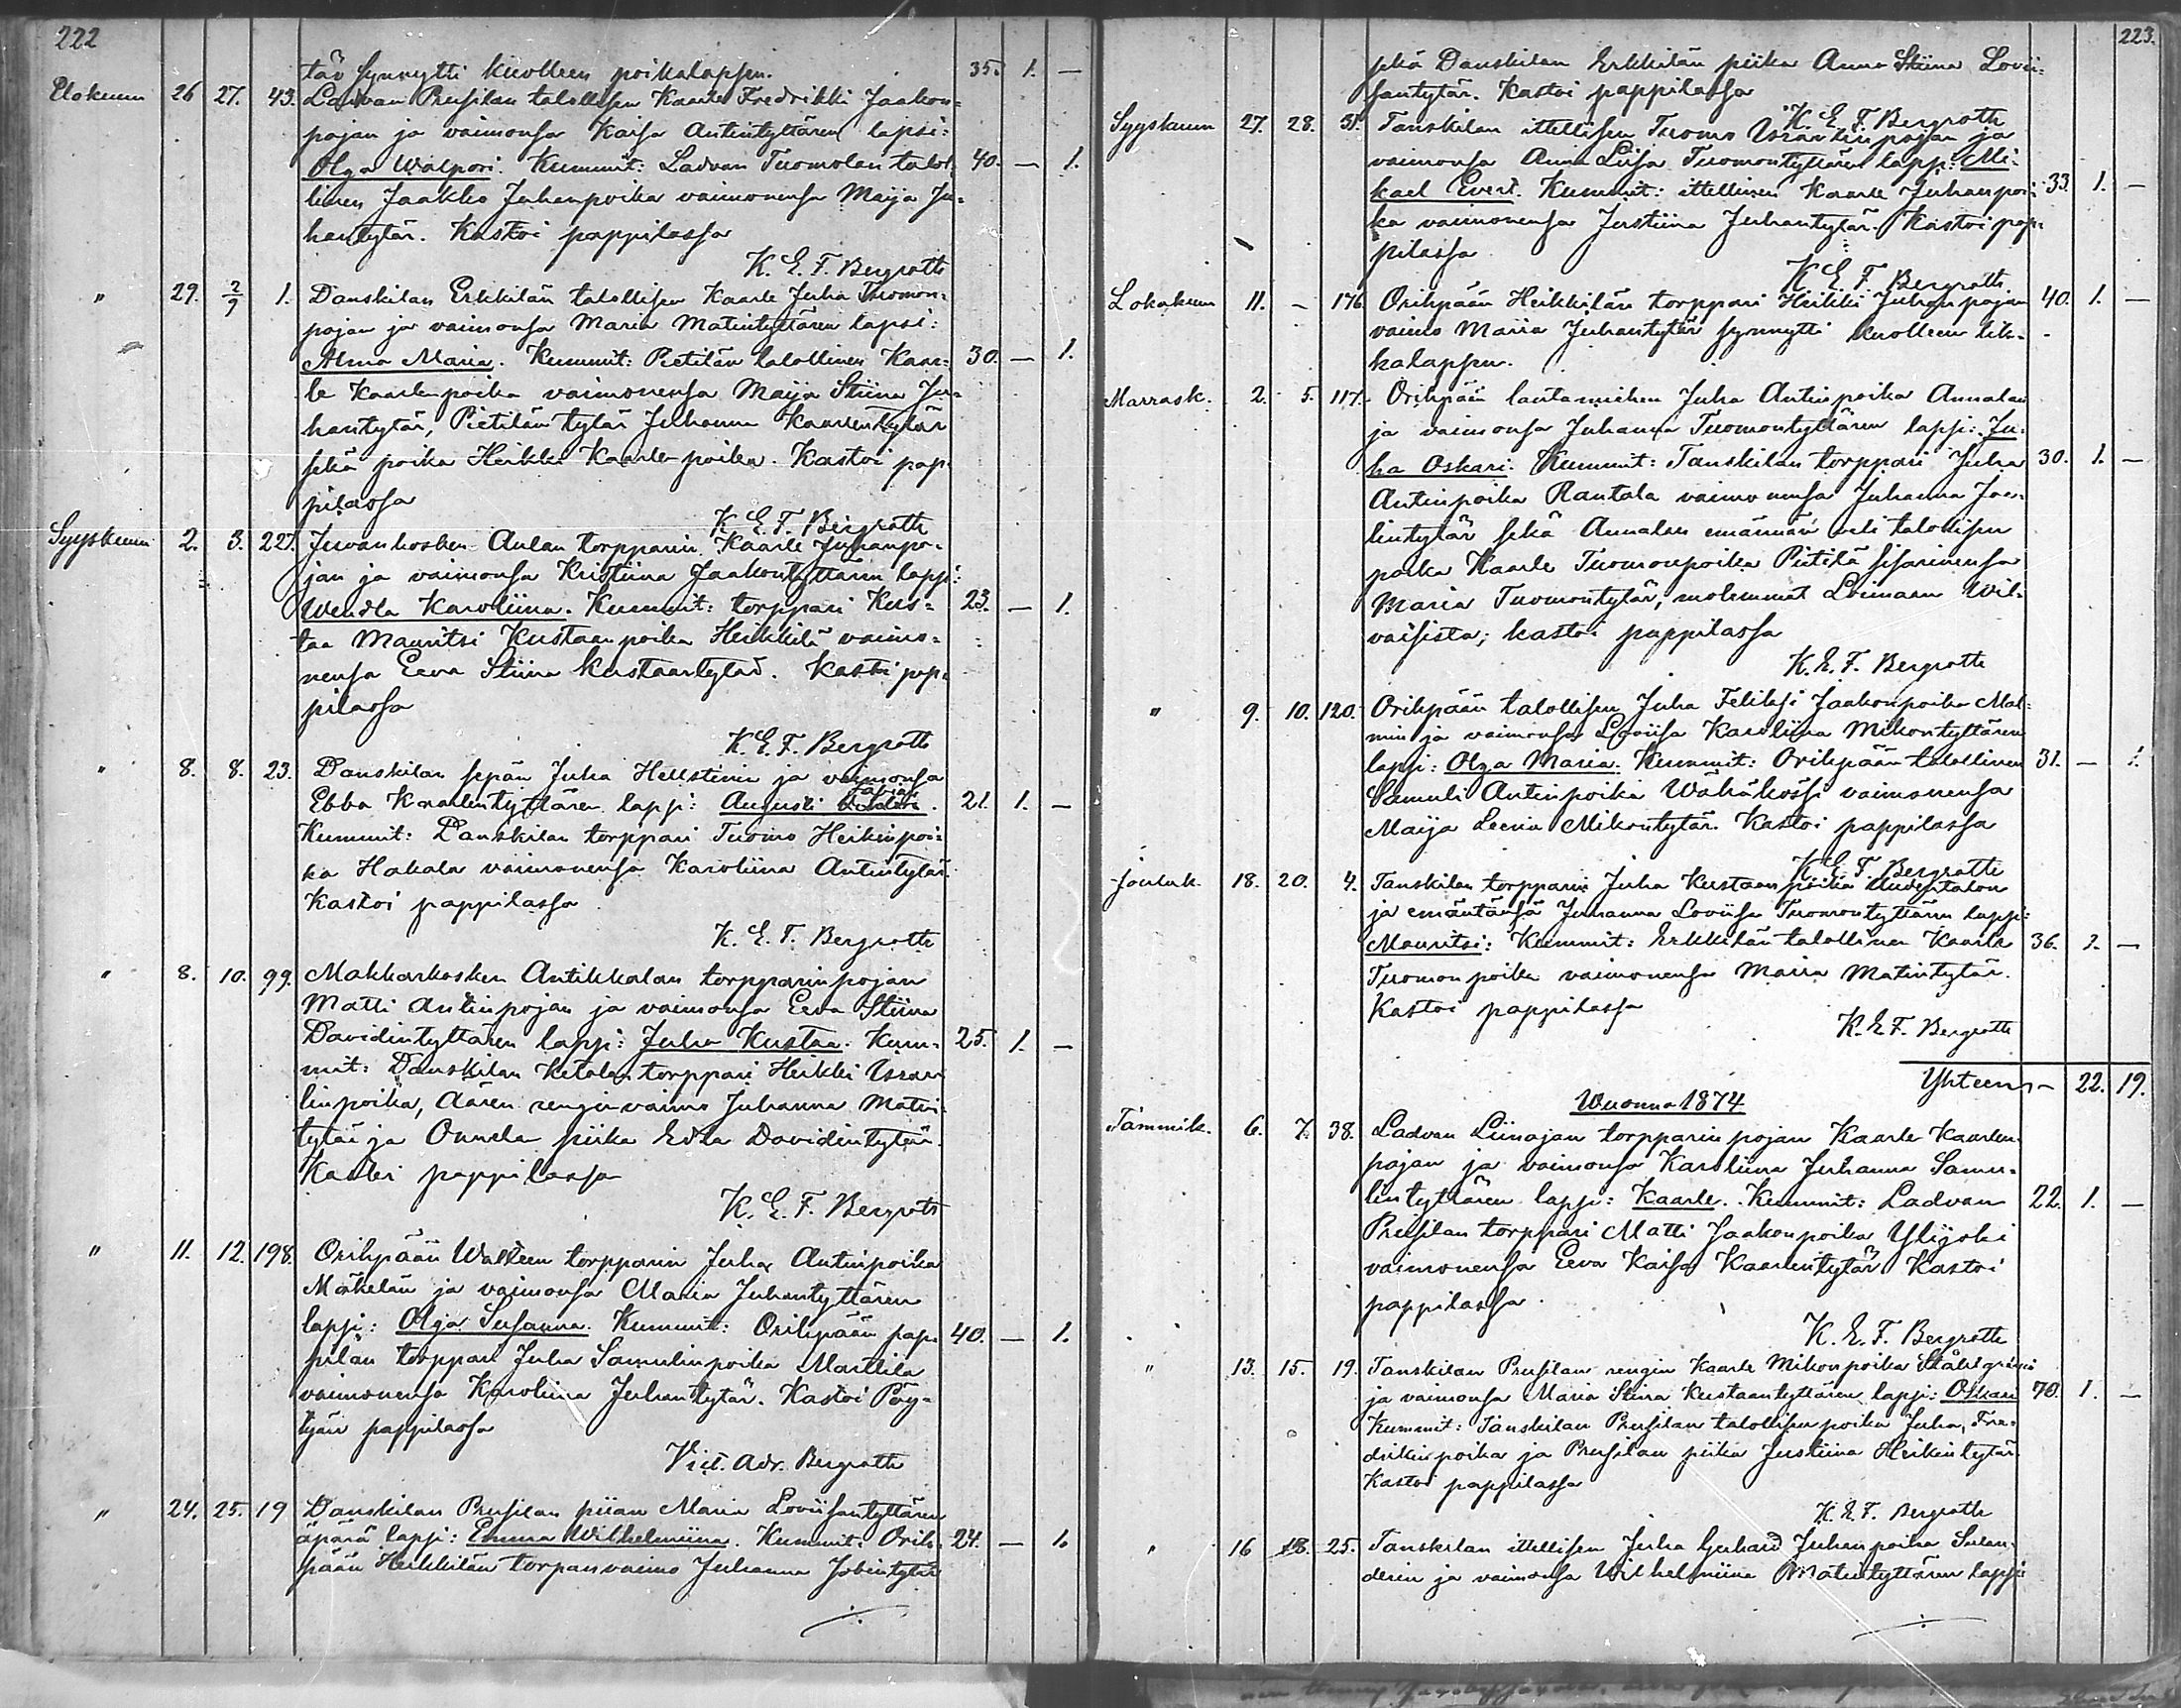 222
tär synnytti kuolleen poikalapsen. 35. 1. —
Elokuun 26 27. 43. Ladvan Prusilan talollisen Kaarle Fredrikki Jaakon-
pojan ja vaimonsa Kaisa Antintyttären lapsi:
Olga Walpori. Kummit: Ladvan Tuomolan talol- 40. — 1.
linen Jaakko Juhanpoika vaimonensa Maija Ju-
hantytär. Kastoi pappilassa
K. E. F. Bergroth
" 29. 2/9 1. Danskilan Erkkilän talollisen Kaarle Juha Tuomon-
pojan ja vaimonsa Maria Matintyttären lapsi:
Alma Maria. Kummit: Pietilän talollinen Kaar- 30. — 1.
le Kaarlenpoika vaimonensa Maija Stiina Ju-
hantytär, Pietilän tytär Juhanna Kaarlentytär
sekä poika Heikki Kaarlenpoika. Kastoi pap-
pilassa
K. E. F. Bergroth
Syyskuun 2. 3. 227. Juvankosken Aulan torpparin Kaarle Juhanpo-
jan ja vaimonsa Kristiina Jaakontyttären lapsi:
Wendla Karoliina. Kummit: torppari Kus- 23. — 1.
taa Mauritsi Kustaanpoika Heikkilä vaimo-
nensa Eeva Stiina Kustaantytär. Kastoi pap-
pilassa
K. E. F. Bergroth
" 8. 8. 23. Danskilan sepän Juha Hellstenin ja vaimonsa
Ebba Kaarlentyttären lapsi: Augusti 21. 1. —
Kummit: Danskilan torppari Tuomo Heikinpoi-
ka Hakala vaimonensa Karoliina Antintytär.
Kastoi pappilassa
K. E. F. Bergroth
" 8. 10. 99. Makkarkosken Antikkalan torpparinpojan
Matti Antinpojan ja vaimonsa Eeva Stiina
Davidintyttären lapsi: Juha Kustaa. Kum- 25. 1. —
mit: Danskilan Ketolan torppari Heikki Israe-
linpoika, Äären renginvaimo Juhanna Matin-
tytär ja Onnela piika Edla Davidintytär.
Kastoi pappilassa
K. E. F. Bergroth
" 11. 12. 198. Orihpään Walteen torpparin Juha Antinpoika
Mäkelän ja vaimonsa Maria Juhantyttären
lapsi: Olga Susanna. Kummit: Orihpään pap- 40. — 1.
pilan torppari Juha Samulinpoika Marttila
vaimonensa Karoliina Juhantytär. Kastoi Pöy-
tyän pappilassa
Vict. Adr. Bergroth
" 24. 25. 19 Danskilan Prusilan piian Maria Loviisantyttären
äpärä lapsi: Emma Wilhelmiina. Kummit: Orih- 24. — 1.
pään Heikkilän torpanvaimo Juhanna Jobintytär
223.
sekä Danskilan Erkkilän piika Anna Stiina Lovii-
santytär. Kastoi pappilassa
K. E. F. Bergroth
Syyskuun 27. 28. 31. Tanskilan itellisen Tuomo Israelinpojan ja
vaimonsa Anna Liisa Tuomontyttären lapsi: Mi-
kael Evert. Kummit: itellinen Kaarle Juhanpoi- 33. 1. —
ka vaimonensa Justiina Juhantytär. Kastoi pap-
pilassa
K. E. F. Bergroth
Lokakuun 11. - 176. Orihpään Heikkilän torppari Heikki Juhanpojan 40. 1. —
vaimo Maria Juhantytär synnytti kuolleen
lapsen.
Marrask. 2. 5. 117. Orihpään lautamiehen Juha Antinpoika Annalan
ja vaimonsa Juhanna Tuomontyttären lapsi: Ju-
ha Oskari. Kummit: Tanskilan torppari Juha 30. 1. —
Antinpoika Rantala vaimonensa Juhanna Joe-
lintytär sekä Annalan emännän veli talollisen
poika Kaarle Tuomonpoika Pietilä sisarinensa
Maria Tuomontytär, molemmat Loimaan Wil-
vaisista; kastoi pappilassa
K. E. F. Bergroth
" 9. 10. 120. Orihpään talollisen Juha Feliksi Jaakonpoika Mal-
min ja vaimonsa Loviisa Karoliina Mikontyttären
lapsi: Olga Maria. Kummit: Orihpään talollinen 31. — 1.
Samuli Antinpoika Wähäkössi vaimonensa
Maija Leena Mikontytär. Kastoi pappilassa
K. E. F. Bergroth
Jouluk. 18. 20. 4. Tanskilan torpparin Juha Kustaanpoika Uudentalon
ja emäntänsä Juhanna Loviisa Tuomontyttären lapsi:
Mauritsi: Kummit: Erkkilän talollinen Kaarle 36. 1. —
Tuomonpoika vaimonensa Maria Matintytär.
Kastoi pappilassa
K. E. F. Bergroth
Yhteensä 22. 19.
Wuonna 1874
Tammik. 6. 7. 38. Ladvan Liinojan torpparin pojan Kaarle Kaarlen-
pojan ja vaimonsa Karoliina Juhanna Samu-
lintyttären lapsi: Kaarle. Kummit: Ladvan 22. 1. —
Prusilan torppari Matti Jaakonpoika Ylijoki
vaimonensa Eeva Kaisa Kaarlentytär. Kastoi
pappilassa.
K. E. F. Bergroth
" 13. 15. 19. Tanskilan Prusilan rengin Kaarle Mikonpoika
ja vaimonsa Maria Stina Kustaantyttären lapsi: Oskari 70. 1. —
Kummit: Tanskilan Prusilan talollisen poika Juha Fre-
drikinpoika ja Prusilan piika Justiina Heikintytär.
Kastoi pappilassa
K. E. F. Bergroth
" 16 18. 25. Tanskilan itellisen Juha Gerhard Juhanpoika Sulan-
derin ja vaimonsa Wilhelmiina Matintyttären lapsi